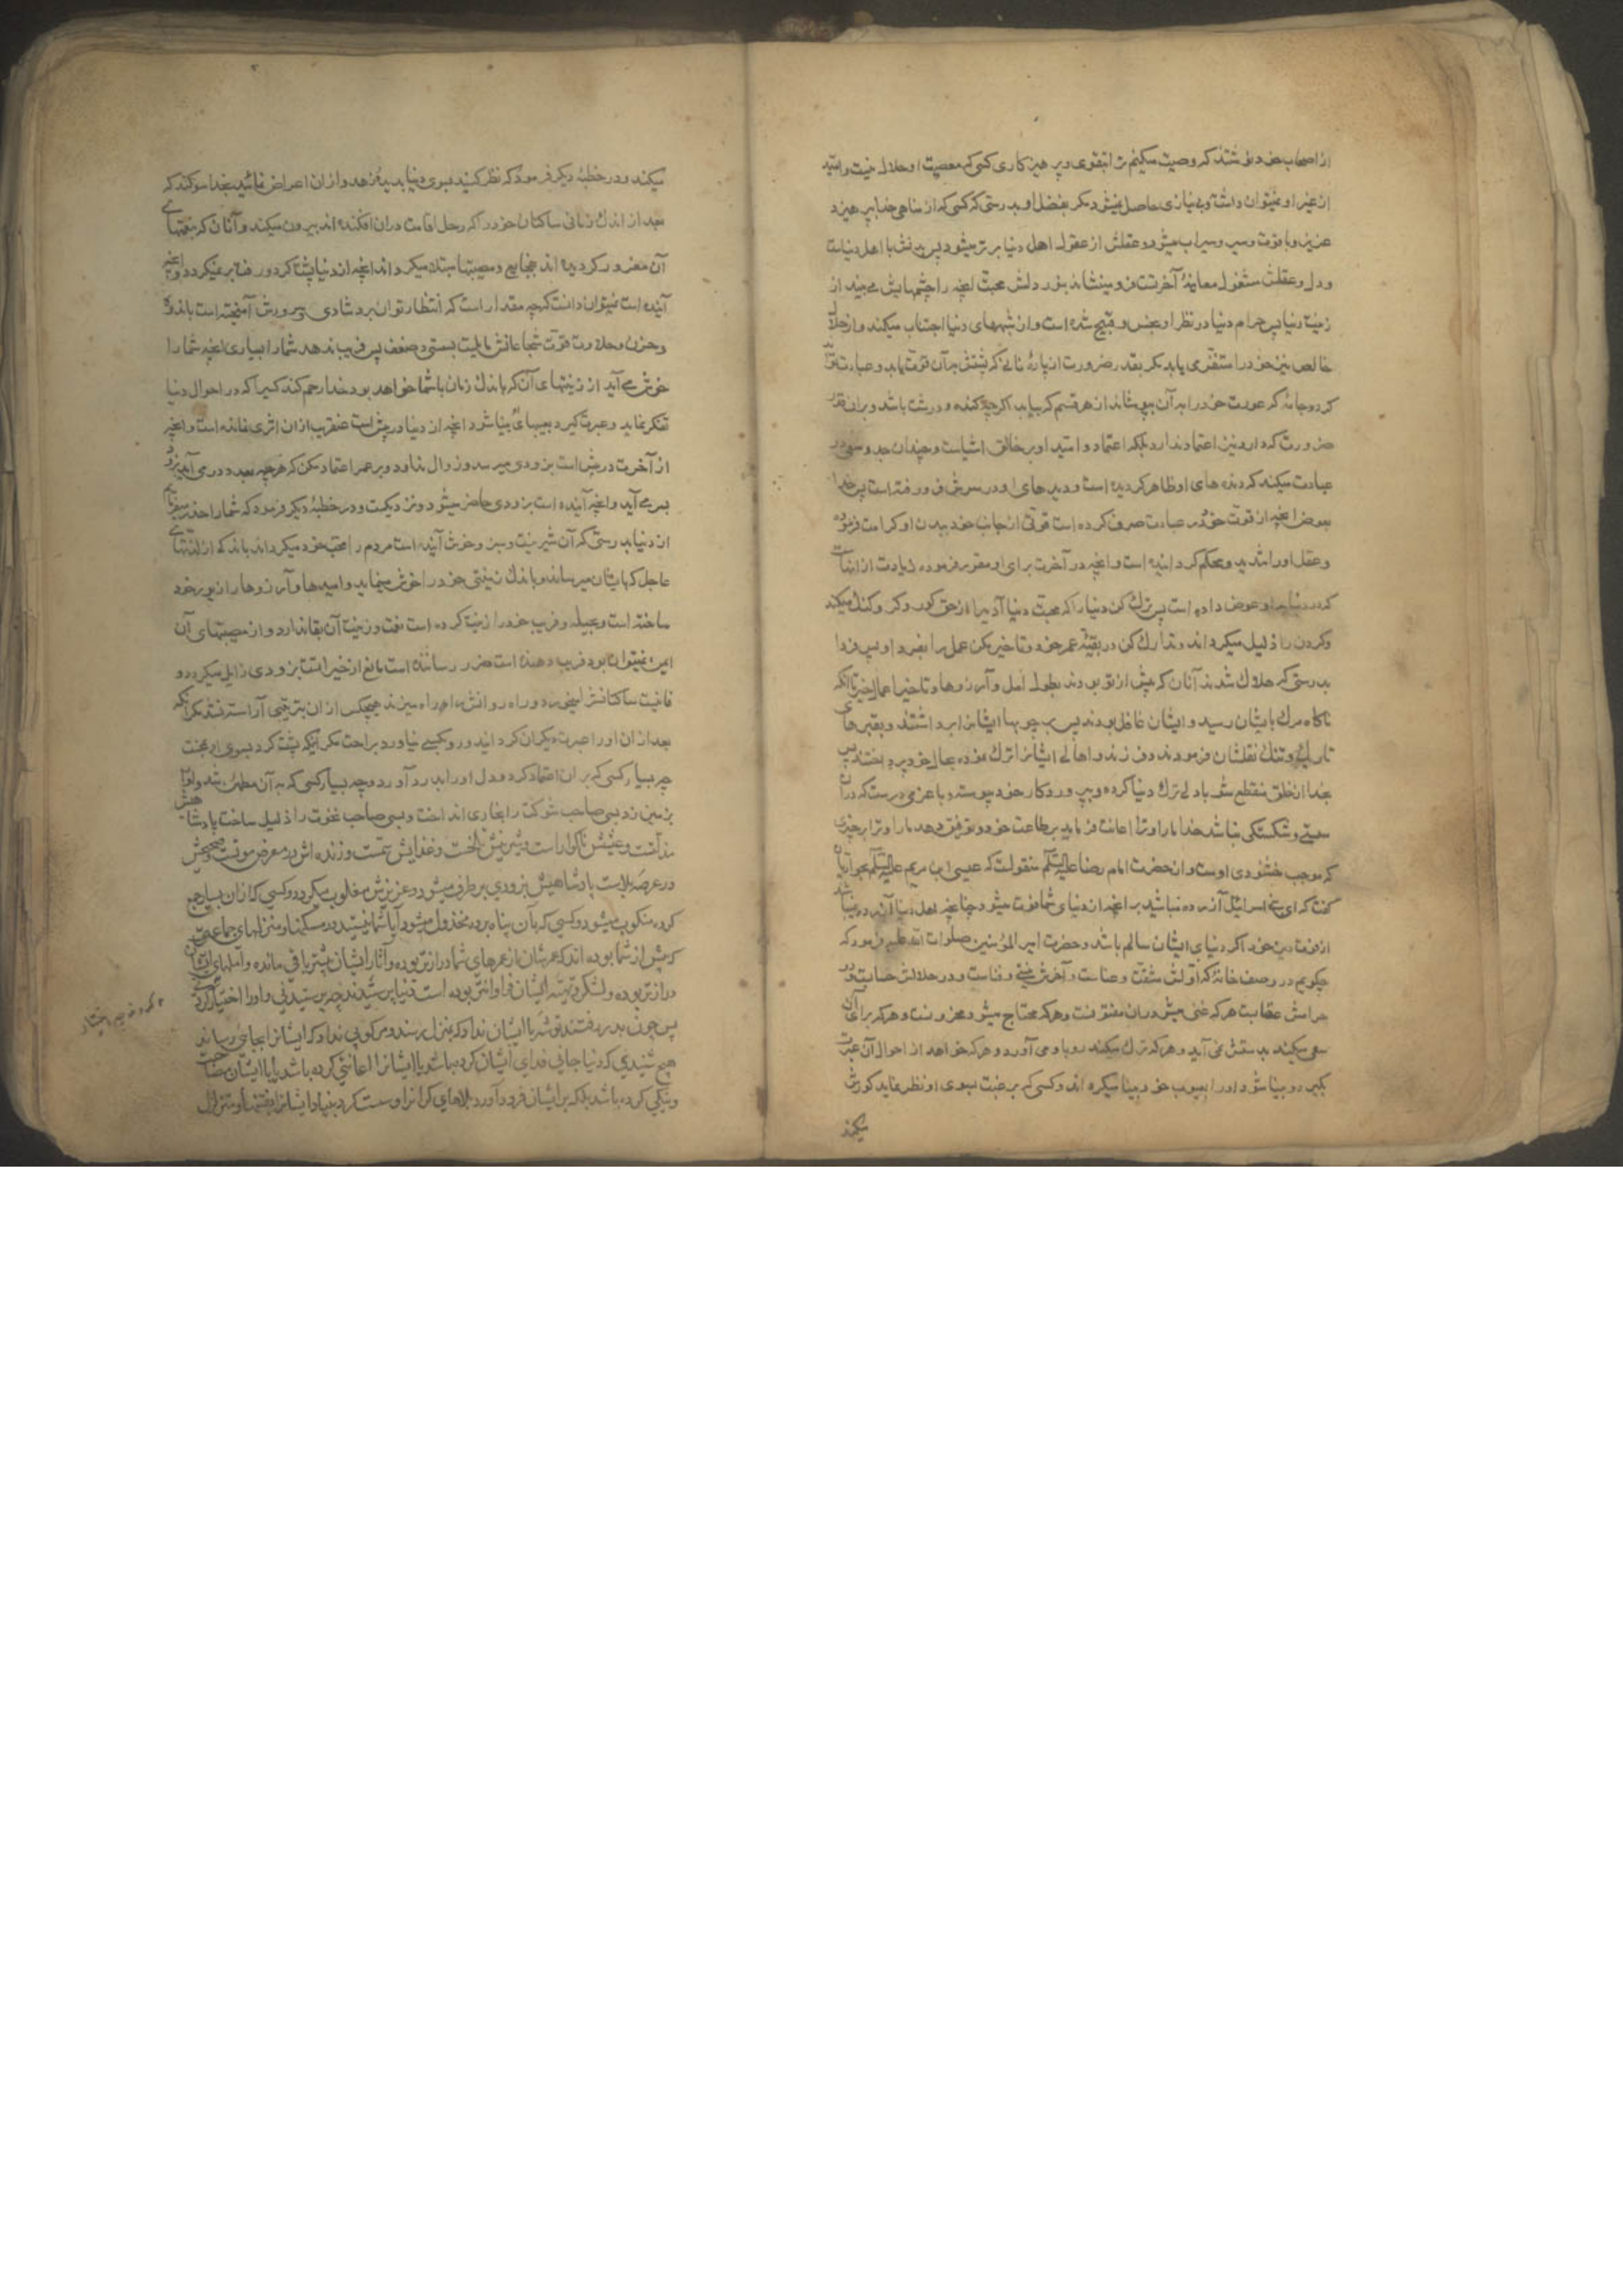 از اصحاب خود نوشتند که وصیت میکنم ترا بتقوی و پرهیزکاری کسی که معصیت او حلال نیست و امید
از غیر او نمیتوان داشت و بی نیازی حاصل نمیشود مکر بفضل او بدرستی که کسی که از مناهی خدا بپرهیزد
عزیز و با قوت و سیر و سیراب میشود و عقلش از عقول اهل دنیا برتر میشود پس بدنش با اهل دنیاست
و دل و عقلش مشغول معاینهٔ آخرتست و مینشاند بنور دلش محبت آنچه را چشمهایش می بیند از
زینت دنیا پس حرام دنیا در نظر او نجس و قبیح شده است و از شبههای دنیا اجتناب میکند و از حلال
خالص نیز خود را متضرر می یابد مکر بقدر ضرورت از پارهٔ نانی که پشتش بر آن قوت یابد و عبادت تواند
کرد و جامهٔ که عورت خود را به آن بپوشاند از هر قسم که بیابد اکرچه کنده و درشت باشد و بر آن قدر
ضرورت که دارد نیز اعتماد ندارد بلکه اعتماد و امید او بر خالق اشیاست و چندان جد و سعی در
عبادت میکند که دنده های او ظاهر کردیده است و دیدهای او در سرش فرو رفته است پس خدا
بعوض آنچه از قوت خود در عبادت صرف کرده است قوتی از جانب خود ببدن او کرامت فرموده
و عقل او را شدید و محکم کردانیده است و آنچه در آخرت برای او مقرر فرموده زیادت از آنهاست
که در دنیا باو عوض داده است پس ترک کن دنیا را که محبت دنیا آدمیرا از حق کور و کر و کنک میکند
و کردن را ذلیل میکرداند و تدارک کن در بقیهٔ عمر خود و تاخیر مکن عمل را بفردا و پس فردا
بدرستی که هلاک شدند آنان که پیش از تو بودند بطول امل و آرزوها و تاخیر اعمال خیر تا آنکه
ناکاه مرک بایشان رسید و ایشان غافل بودند پس بر چوبها ایشانرا برداشتند و بقبرهای
تاریک و تنک نقلشان فرمودند و فرزند و اهالی ایشانرا ترک نموده بحال خود پرداختند پس
بخدا از خلق منقطع شو با دلی ترک دنیا کرده و بپرورد کار خود پیوسته و با عزمی درست که در آن
سستی و شکستکی نباشد خدا ما را و ترا اعانت فرماید بر طاعت خود و توفیق دهد ما را و ترا بچیزی
که موجب خشنودی اوست و از حضرت امام رضا علیه السلم منقولست که عیسی ابن مریم علیه السلم بحواریان
کفت که ای بنی اسرائیل آزرده مباشید بر آنچه از دنیای شما فوت میشود چنانچه اهل دنیا آزرده نمیباشند
از فوت دین خود اکر دنیای ایشان سالم باشد و حضرت امیر المؤمنین صلوات الله علیه فرمود که
چکویم در وصف خانهٔ که اولش مشقت و عناست و آخرش نیستی و فناست و در حلالش حسابست و در
حرامش عقابست هر که غنی میشود در آن مفتونست و هر که محتاج میشود محزونست و هر که برای آن
سعی میکند بدستش نمی آید و هر که ترک میکند رو باو می آورد و هر که خواهد از احوال آن عبرت
بکیرد و بینا شود او را بعیوب خود بینا میکرداند و کسی که برغبت بسوی او نظر نماید کورش
میکند
میکند و در خطبهٔ دیکر فرمود که نظر کنید بسوی دنیا بدیدهٔ زهد و از آن اعراض نمائید بخدا سوکند که
بعد از اندک زمانی ساکنان خود را که رحل اقامت در آن افکنده اند بیرون میکند و آنان که بنعمتهای
آن مغرور کردیده اند بفجایع و مصیبتها مبتلا میکرداند آنچه از دنیا پشت کرد و رفت بر نمیکردد و آنچه
آینده است نمیتوان دانست که چه مقدار است که انتظار توان برد شادی و سرورش آمیخته است باندوه
و حزن و جلادت و قوت شجاعانش مایلست بسستی و ضعف پس فریب ندهد شما را بسیاری آنچه شما را
خوش می آید از زینتهای آن که باندک زمان با شما خواهد بود خدا رحم کند کسی را که در احوال دنیا
تفکر نماید و عبرت کیرد و بعیبهای آن بینا شود آنچه از دنیا در پیش است عنقریب از آن اثری نمانده است و آنچه
از آخرت در پیش است بزودی میرسد و زوال ندارد و بر عمر اعتماد مکن که هر چه بعدد در می آید بزودی
بسر می آید و آنچه آینده است بزودی حاضر میشود و نزدیکست و در خطبهٔ دیکر فرمود که شما را حذر میفرمایم
از دنیا بدرستی که آن شیرینست و سبز و خوش آینده است مردم را محب خود میکرداند باندکی از لذتهای
عاجل که بایشان میرساند و باندک زینتی خود را خوش مینماید و امیدها و آرزوها را زیور خود
ساخته است و بحیله و فریب خود را زینت کرده است نعمت و زینت آن بقا ندارد و از مصیبتهای آن
ایمن نمیتوان بود فریب دهنده است ضرر رساننده است مانع از خیراتست بزودی زایل میکردد و
فانیست ساکنانش را میخورد و راه روانش را راه میزند هیچکس از آن بترتیبی آراسته نشد مکر آنکه
بعد از آن او را عبرت دیکران کردانید و رو بکسی نیاورد براحت مکر آنکه پشت کرد بسوی او بمحنت
چه بسیار کسی که بر آن اعتماد کرد و دل او را بدرد آورد و چه بسیار کسی که به آن مطمئن شد و او را
بر زمین زد بسی صاحب شوکت را بخاری انداخت و بسی صاحب نخوت را ذلیل ساخت پادشاهیش
مذلتست و عیشش ناکوار است و شیرینش تلخست و غذایش سمست و زنده اش در معرض موتست و صحیحش
در عرصهٔ بلاست پادشاهیش بزودی بر طرف میشود و عزیزش مغلوب میکردد و کسی که از آن بسیار جمع
کرده منکوب میشود و کسی که بآن پناه برده مخذول میشود آیا شما نیستید در مسکنها و منزلهای جماعتی
که پیش از شما بوده اند که عمرشان از عمرهای شما درازتر بوده و آثار ایشان بیشتر باقی مانده و املهای ایشان
درازتر بوده و لشکر و تهیهٔ ایشان فراوانتر بوده است دنیا پرستیدند چه پرستیدنی و او را اختیار کردند
پس چون بدر رفتند توشهٔ با ایشان نداد که بمنزل رسند و مرکوبی نداد که ایشانرا بجائی رساند
هیچ شنیدی که دنیا جانی فدای ایشان کرده باشد یا ایشانرا اعانتی کرده باشد یا با ایشان مصاحبت
و نیکی کرده باشد بلکه بر ایشان فرود آورد بلاهای کران را و سست کرد بنیاد ایشانرا بفتنها و متزلزل